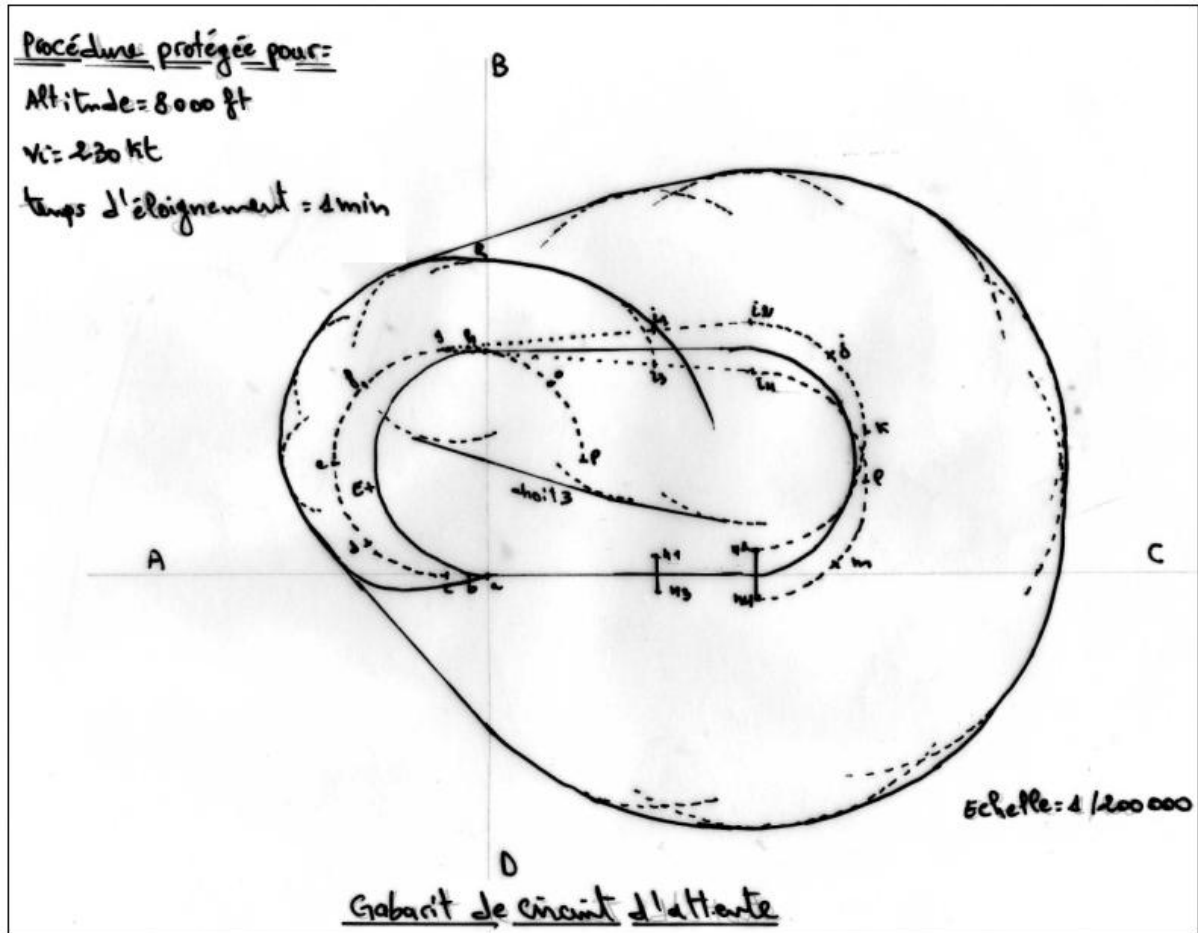 Procédure protégée pour=
Altitude= 8000 ft
Vi= 230 Kt
temps d'éloignement = 1min
B
R
g h i1 i2
f o i3 i4 j
e p K
E+ droit 3 l
d
A C
n1 n2 m
c b a n3 n4
D
Echelle= 1/200 000
Gabarit de circuit d'attente